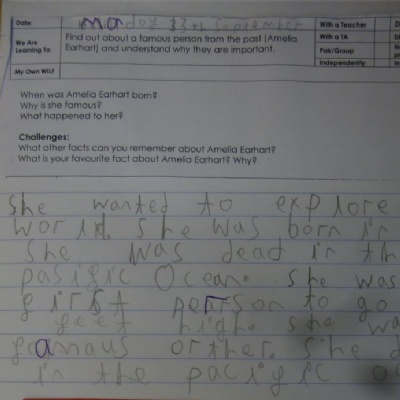 Date: Monday 13th September
We Are Learning To: Find out about a famous person from the past (Amelia Earhart) and understand why they are important.
My Own WILF
With a Teacher
With a TA
Pair/Group
Independently
When was Amelia Earhart born?
Why is she famous?
What happened to her?
Challenges:
What other facts can you remember about Amelia Earhart?
What is your favourite fact about Amelia Earhart? Why?
She wanted to explore
world. she was born in
She was dead in th
pasific Ocean. she was
first person to go
feet high. she wa
famaus orther. She d
in the pacific oc